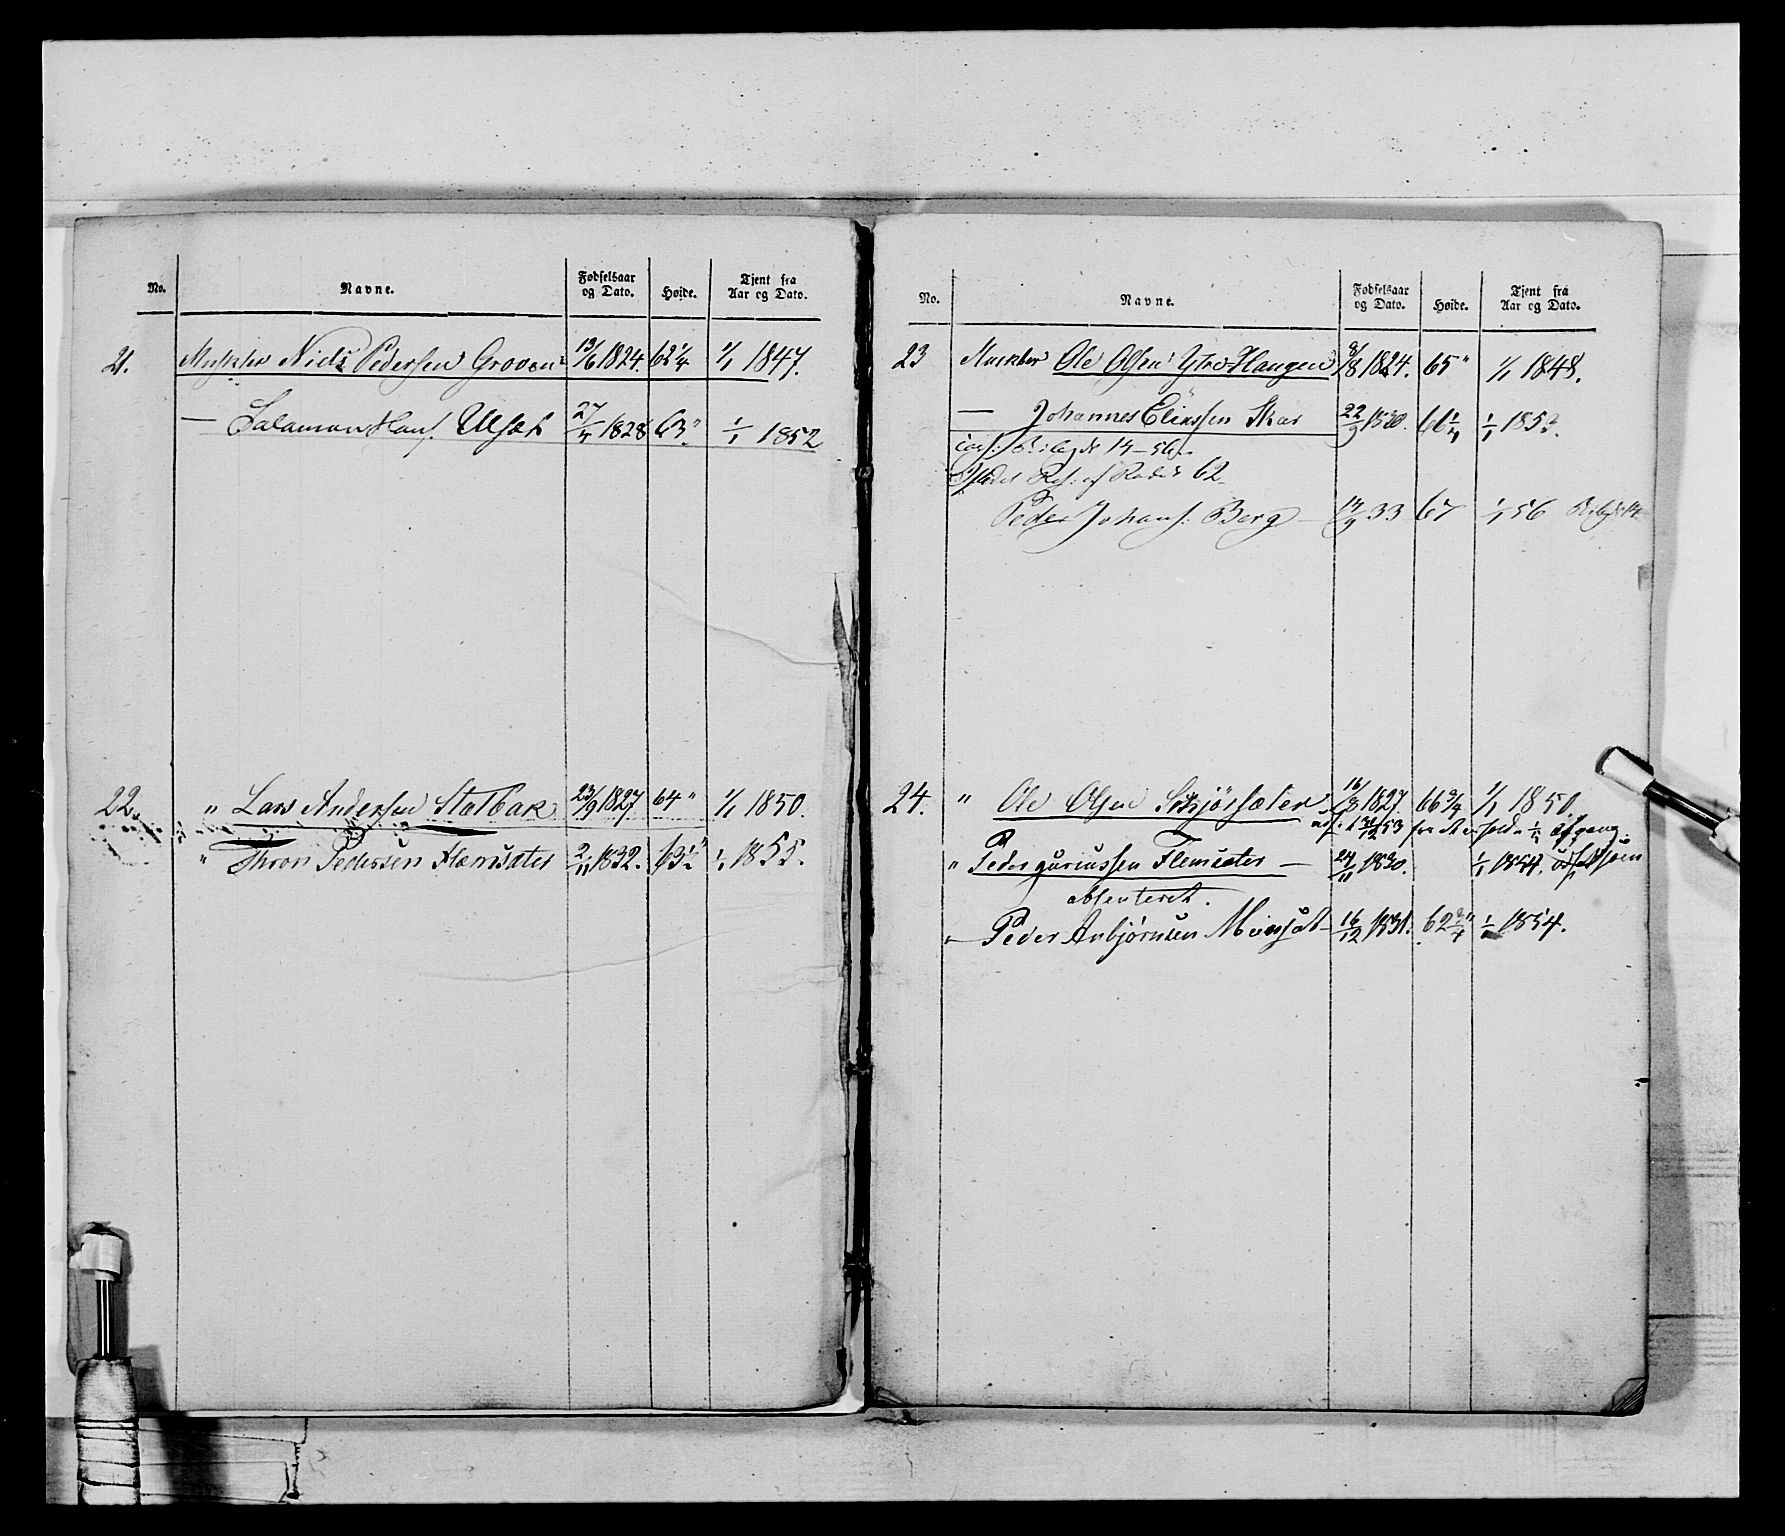 No. Navne. Fødselsaar og Dato. Høide. Tjent fra Aar og Dato.
21. Musktr Niels Pedersen Groven 13/6 1824. 62 1/4 1/1 1847.
— Salamon Hans. Ulset 27/4 1828 63 " 1/1 1852
22. " Lars Andersen Stalbak 23/9 1827 64 " 1/1 1850.
" Thron Pedersen Flemsæter 2/11 1832. 63 1/2 " 1/1 1855.
No. Navne. Fødselsaar og Dato. Høide. Tjent fra Aar og Dato.
23 Musktr Ole Olsen Ytre Haugen 8/8 1824. 65 " 1/1 1848.
— Johannes Eliassen Skar 22/9 1830. 66 1/4 1/1 1853.
14-56
62
Peder Johans. Berg — 14/9 33 67 1/1 56
24. " Ole Olsen 16/3 1827 66 3/4 1/1 1850.
31/12 53 afgang
" Peder Guriussen Flemsæter — 24/11 1830. 1/1 1854.
absenteret.
" Peder Anbjørnsen 16/12 1831. 62 3/4 " 1/1 1854.